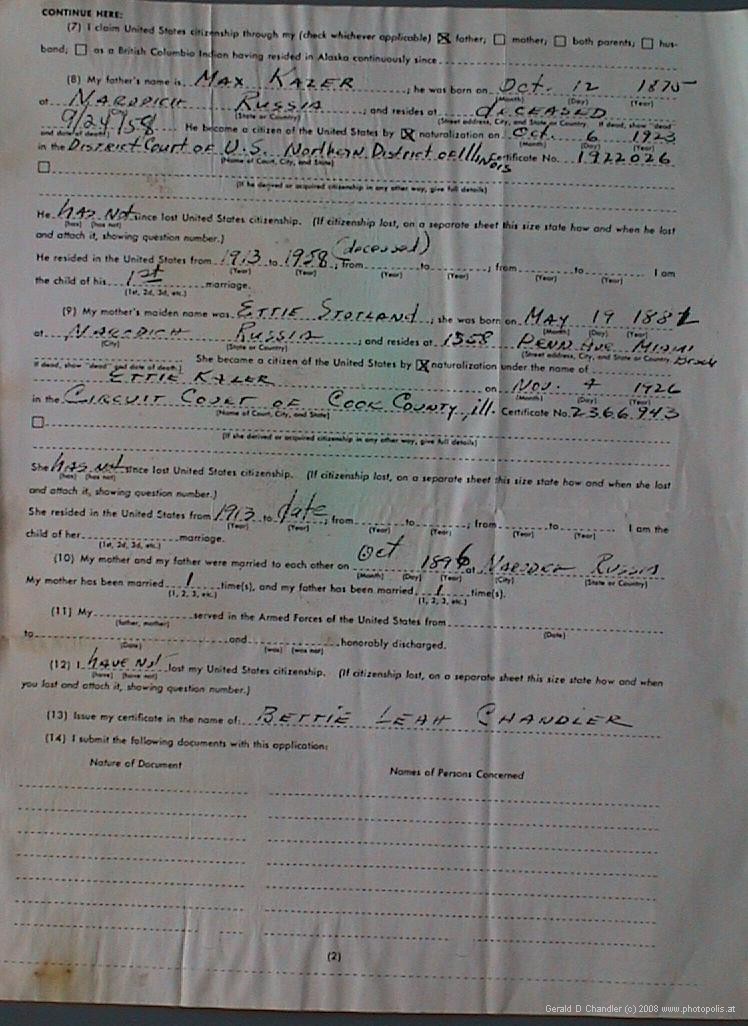 CONTINUE HERE:
(7) I claim United States citizenship through my (check whichever applicable) ☒ father; ☐ mother; ☐ both parents; ☐ hus-
band; ☐ as a British Columbia Indian having resided in Alaska continuously since
(8) My father's name is MAX KAZER ; he was born on Oct. 12 1875
(Month) (Day) (Year)
at NARODICH RUSSIA ; and resides at deceased
(City) (State or Country) (Street address, City, and State or Country. If dead, show "dead"
9/24/58 He became a citizen of the United States by ☒ naturalization on Oct. 6 1923
and date of death.) (Month) (Day) (Year)
in the District Court of U.S. Northern District of Illinois Certificate No. 1922026
(Name of Court, City, and State)
☐
(If he derived or acquired citizenship in any other way, give full details)
He has not since lost United States citizenship. (If citizenship lost, on a separate sheet this size state how and when he lost
(has) (has not)
and attach it, showing question number.)
He resided in the United States from 1913 to 1958 (deceased) ; from to ; from to . I am
(Year) (Year) (Year) (Year) (Year) (Year)
the child of his 1st marriage.
(1st, 2d, 3d, etc.)
(9) My mother's maiden name was ETTIE STOTLAND ; she was born on MAY 19 1882
(Month) (Day) (Year)
at NARODICH RUSSIA ; and resides at 1358 PENN AVE MIAMI Beach
(City) (State or Country) (Street address, City, and State or Country.
If dead, show "dead" and date of death.) She became a citizen of the United States by ☒ naturalization under the name of
ETTIE KAZER on NOV. 4 1926
(Month) (Day) (Year)
in the CIRCUIT COURT OF COOK COUNTY, ill. Certificate No. 2366943
(Name of Court, City, and State)
☐
(If she derived or acquired citizenship in any other way, give full details)
She has not since lost United States citizenship. (If citizenship lost, on a separate sheet this size state how and when she lost
(has) (has not)
and attach it, showing question number.)
She resided in the United States from 1913 to date ; from to ; from to . I am the
(Year) (Year) (Year) (Year) (Year) (Year)
child of her marriage.
(1st, 2d, 3d, etc.)
(10) My mother and my father were married to each other on Oct 1896 at RUSSIA
(Month) (Day) (Year) (City) (State or Country)
My mother has been married 1 time(s), and my father has been married 1 time(s).
(1, 2, 3, etc.) (1, 2, 3, etc.)
(11) My served in the Armed Forces of the United States from
(father, mother) (Date)
to and honorably discharged.
(Date) (was) (was not)
(12) I have not lost my United States citizenship. (If citizenship lost, on a separate sheet this size state how and when
(have) (have not)
you lost and attach it, showing question number.)
(13) Issue my certificate in the name of: BETTIE LEAH CHANDLER
(14) I submit the following documents with this application:
Nature of Document Names of Persons Concerned
(2)
Gerald D Chandler (c) 2008 www.photopolis.at